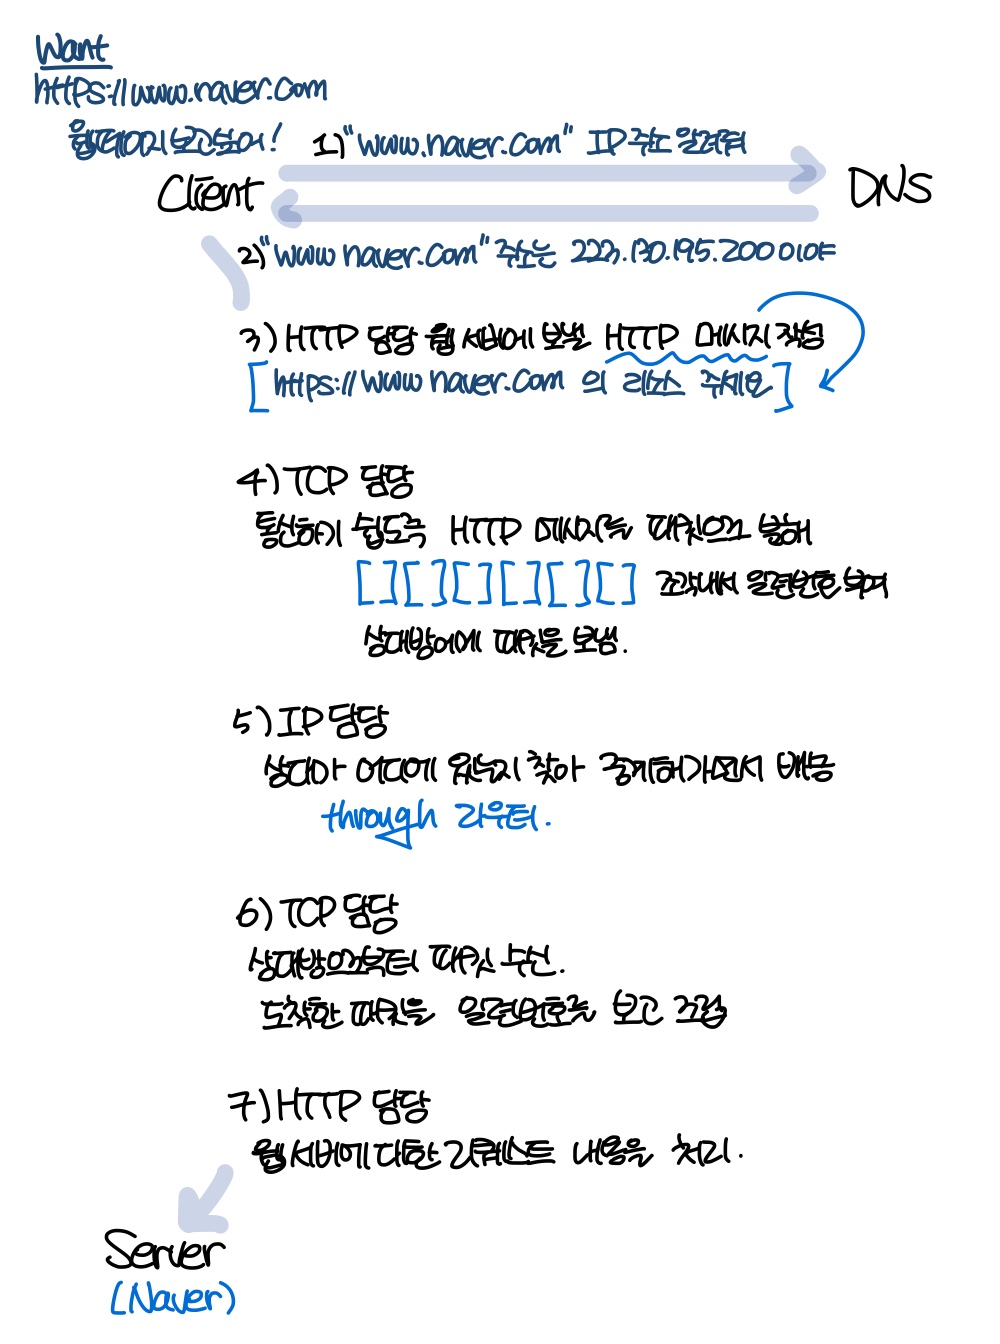 Want
https://www.naver.com
웹페이지 보고싶어!
1) "www.naver.com" IP 주소 알려줘
Client
DNS
2) "www.naver.com" 주소는 223.130.195.200 이야
3) HTTP 담당 웹 서버에 보낼 HTTP 메시지 작성
[https://www.naver.com 의 리소스 주세요]
4) TCP 담당
통신하기 쉽도록 HTTP 메시지를 패킷으로 분해
[ ] [ ] [ ] [ ] [ ] [ ] 조각내서 일련번호 부여
상대방에게 패킷을 보냄.
5) IP 담당
상대가 어디에 있는지 찾아 중계해가면서 배송
through 라우터.
6) TCP 담당
상대방으로부터 패킷 수신.
도착한 패킷을 일련번호를 보고 조립
7) HTTP 담당
웹 서버에 대한 리퀘스트 내용을 처리.
Server
(Naver)